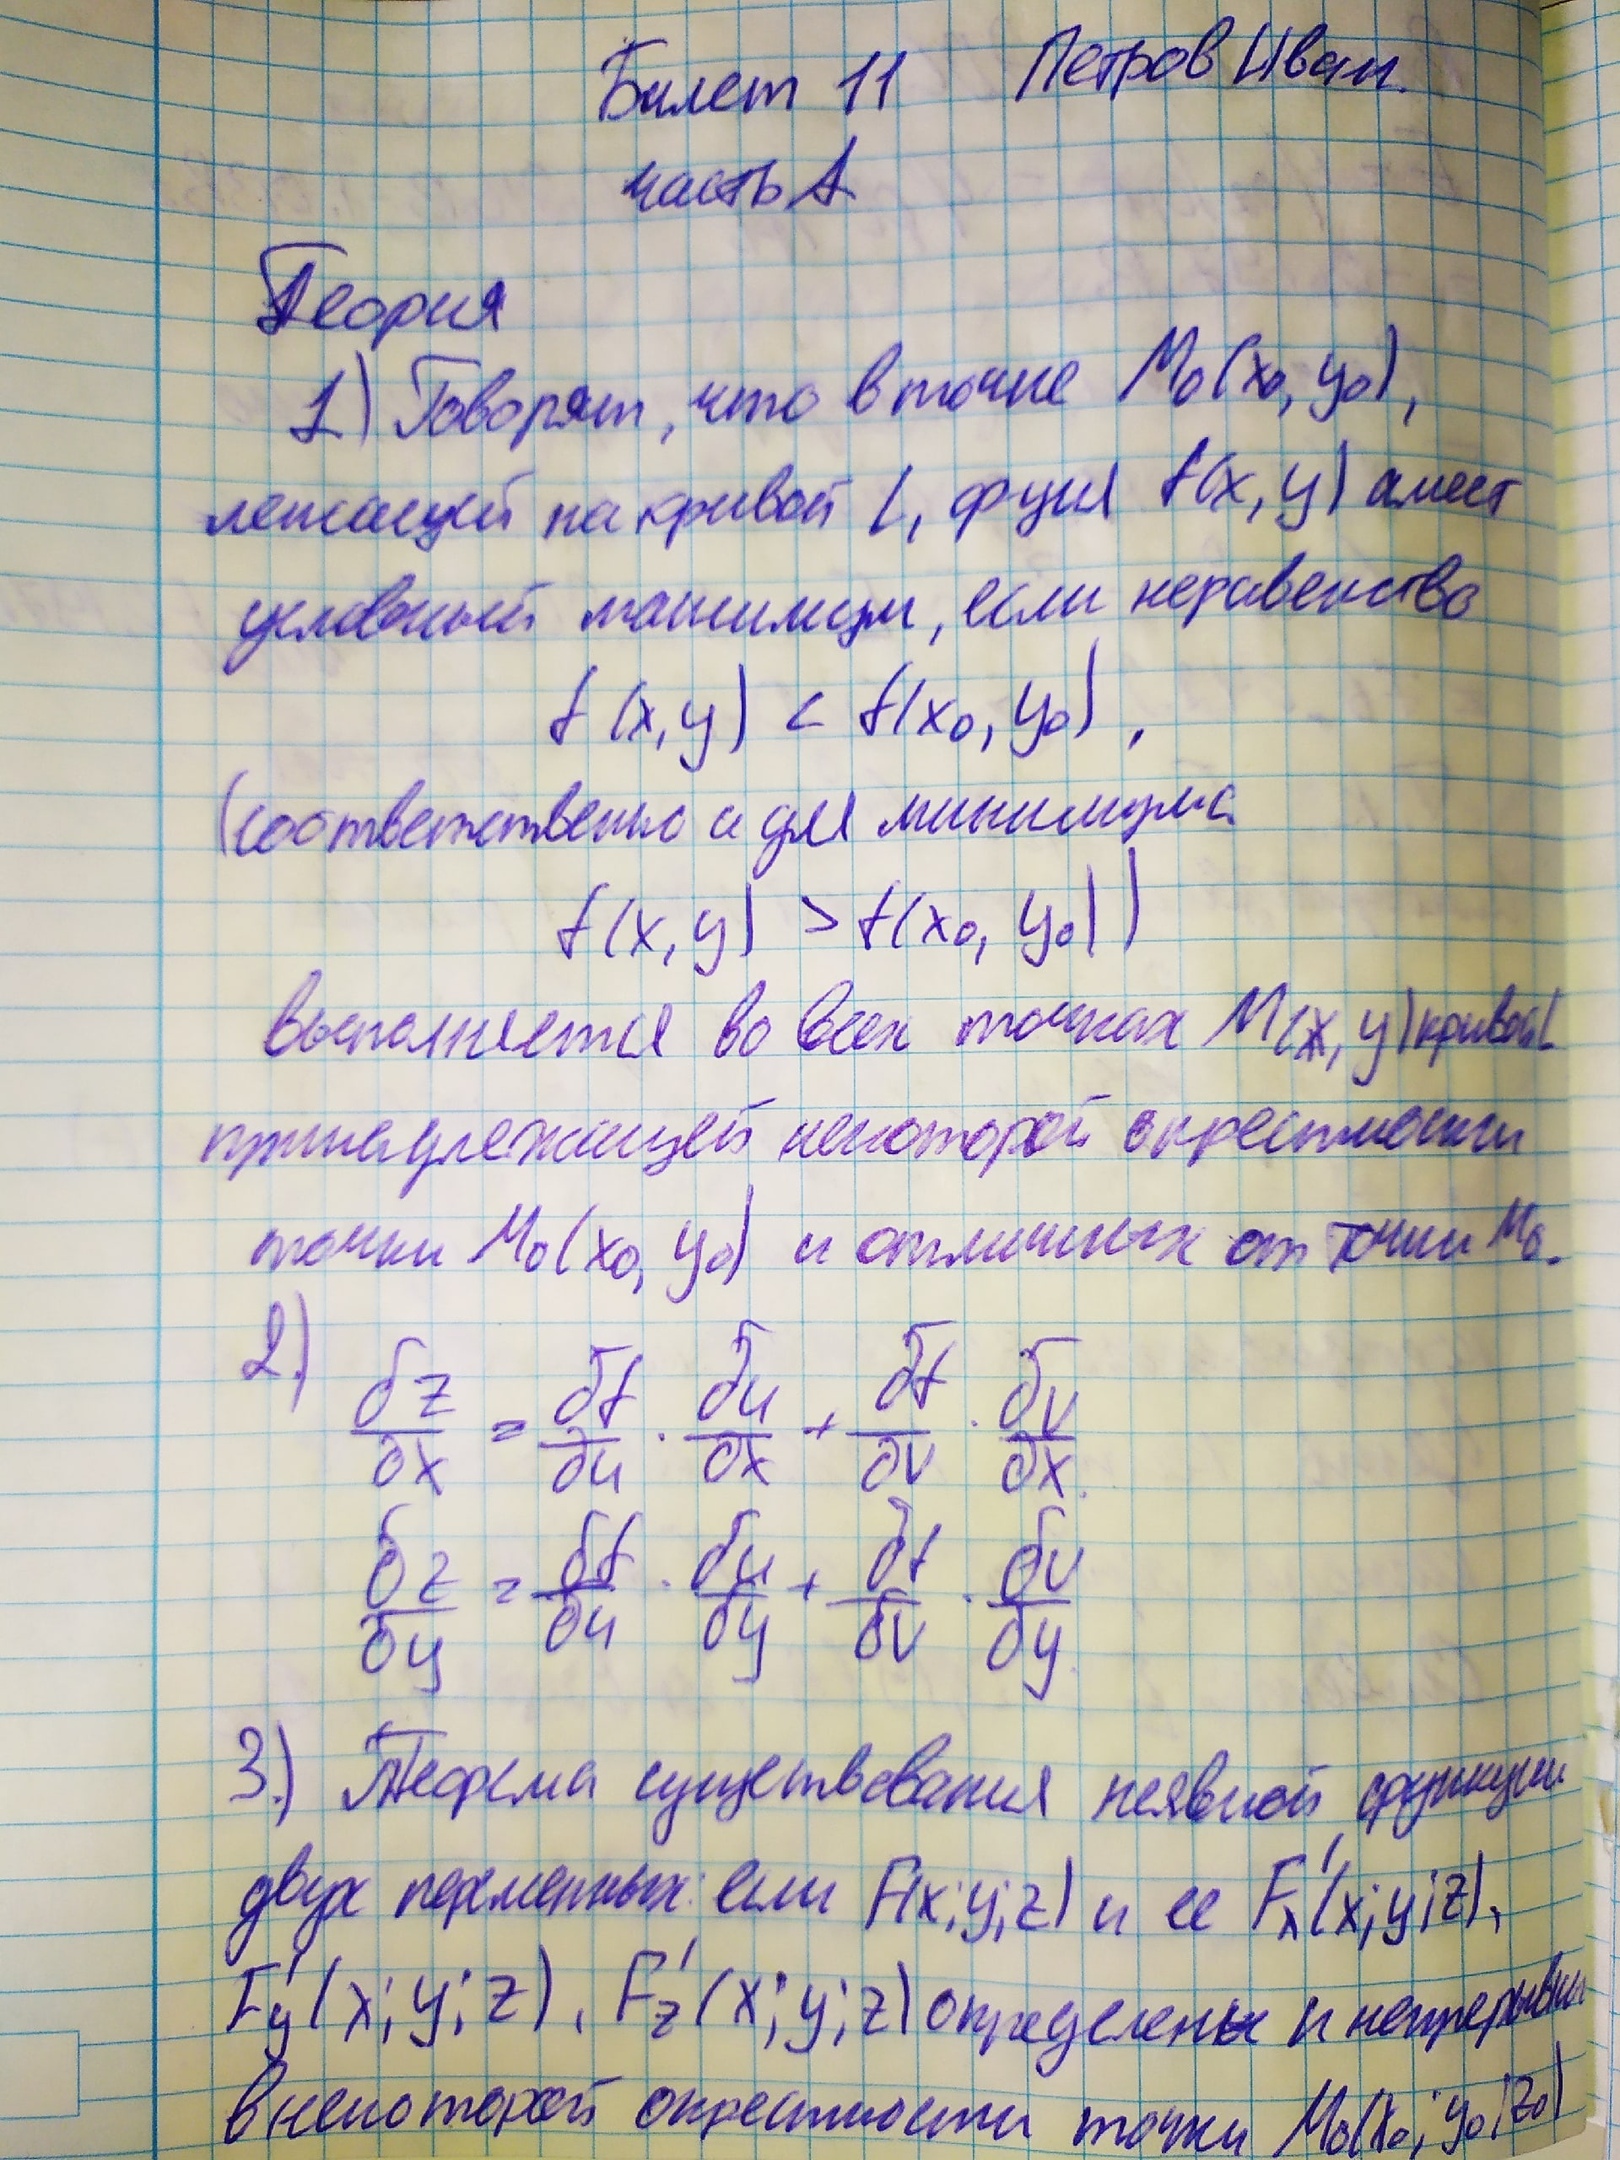 Билет 11 Петров Иван.
часть A
Теория
1) Говорят, что в точке M₀(x₀, y₀),
лежащей на кривой L, фция f(x, y) имеет
условный максимум, если неравенство
f (x, y) < f(x₀, y₀),
(соответственно и для минимума
f(x, y) > f(x₀, y₀))
выполняется во всех точках M(x, y) кривой L
принадлежащей некоторой окрестности
точки M₀(x₀, y₀) и отличных от точки M₀.
2.) ∂z/∂x = ∂f/∂u · ∂u/∂x + ∂f/∂v · ∂v/∂x.
∂z/∂y = ∂f/∂u · ∂u/∂y + ∂f/∂v · ∂v/∂y.
3.) Теорема существования неявной функции
двух переменных: если F(x; y; z) и ее F'ₓ(x; y; z),
F'y(x; y; z), F'z(x; y; z) определены и непрерывны
в некоторой окрестности точки M₀(x₀; y₀; z₀)